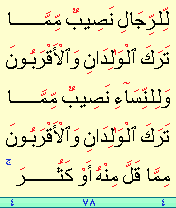 لِّلرِّجَالِ نَصِيبٌ مِّمَّا
تَرَكَ ٱلْوَٰلِدَانِ وَٱلْأَقْرَبُونَ
وَلِلنِّسَآءِ نَصِيبٌ مِّمَّا
تَرَكَ ٱلْوَٰلِدَانِ وَٱلْأَقْرَبُونَ
مِمَّا قَلَّ مِنْهُ أَوْ كَثُرَ ۚ
٤ ٧٨ ٤